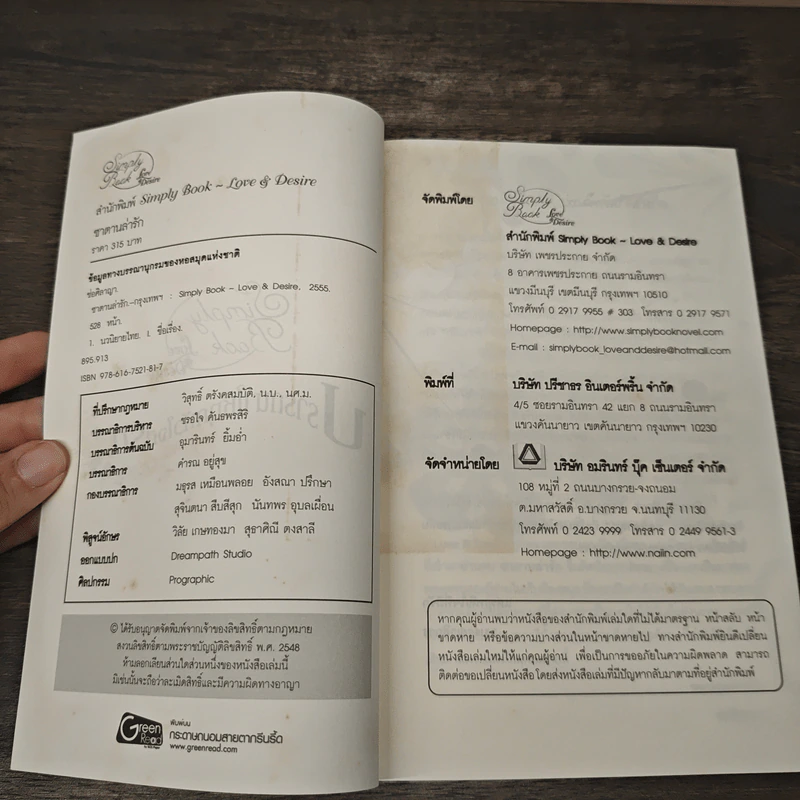 Simply Book Love & Desire
สำนักพิมพ์ Simply Book ~ Love & Desire
ซาตานล่ารัก
ราคา 315 บาท
ข้อมูลทางบรรณานุกรมของหอสมุดแห่งชาติ
ช่อศิลาญา.
ซาตานล่ารัก.--กรุงเทพฯ : Simply Book – Love & Desire, 2555.
528 หน้า.
1. นวนิยายไทย. I. ชื่อเรื่อง.
895.913
ISBN 978-616-7521-81-7
ที่ปรึกษากฎหมาย วิสุทธิ์ ตรังคสมบัติ, น.บ., นศ.ม.
บรรณาธิการบริหาร ชรอใจ คันธพรสิริ
บรรณาธิการต้นฉบับ อุมารินทร์ ยิ้มอ่ำ
บรรณาธิการ คำรณ อยู่สุข
กองบรรณาธิการ มธุรส เหมือนพลอย อังสณา ปรึกษา
สุจินตนา สืบสีสุก นันทพร อุบลเผื่อน
พิสูจน์อักษร วิลัย เกษทองมา สุธาศิณี ตงสาลี
ออกแบบปก Dreampath Studio
ศิลปกรรม Prographic
© ได้รับอนุญาตจัดพิมพ์จากเจ้าของลิขสิทธิ์ตามกฎหมาย
สงวนลิขสิทธิ์ตามพระราชบัญญัติลิขสิทธิ์ พ.ศ. 2548
ห้ามลอกเลียนส่วนใดส่วนหนึ่งของหนังสือเล่มนี้
มิเช่นนั้นจะถือว่าละเมิดสิทธิ์และมีความผิดทางอาญา
Green Read
พิมพ์บน
กระดาษถนอมสายตากรีนรี้ด
www.greenread.com
จัดพิมพ์โดย Simply Book Love & Desire
สำนักพิมพ์ Simply Book ~ Love & Desire
บริษัท เพชรประกาย จำกัด
8 อาคารเพชรประกาย ถนนรามอินทรา
แขวงมีนบุรี เขตมีนบุรี กรุงเทพฯ 10510
โทรศัพท์ 0 2917 9955 # 303 โทรสาร 0 2917 9571
Homepage : http://www.simplybooknovel.com
E-mail : simplybook_loveanddesire@hotmail.com
พิมพ์ที่ บริษัท ปรีชาธร อินเตอร์พริ้น จำกัด
4/5 ซอยรามอินทรา 42 แยก 8 ถนนรามอินทรา
แขวงคันนายาว เขตคันนายาว กรุงเทพฯ 10230
จัดจำหน่ายโดย บริษัท อมรินทร์ บุ๊ค เซ็นเตอร์ จำกัด
108 หมู่ที่ 2 ถนนบางกรวย-จงถนอม
ต.มหาสวัสดิ์ อ.บางกรวย จ.นนทบุรี 11130
โทรศัพท์ 0 2423 9999 โทรสาร 0 2449 9561-3
Homepage : http://www.naiin.com
หากคุณผู้อ่านพบว่าหนังสือของสำนักพิมพ์เล่มใดที่ไม่ได้มาตรฐาน หน้าสลับ หน้า
ขาดหาย หรือข้อความบางส่วนในหน้าขาดหายไป ทางสำนักพิมพ์ยินดีเปลี่ยน
หนังสือเล่มใหม่ให้แก่คุณผู้อ่าน เพื่อเป็นการขออภัยในความผิดพลาด สามารถ
ติดต่อขอเปลี่ยนหนังสือ โดยส่งหนังสือเล่มที่มีปัญหากลับมาตามที่อยู่สำนักพิมพ์